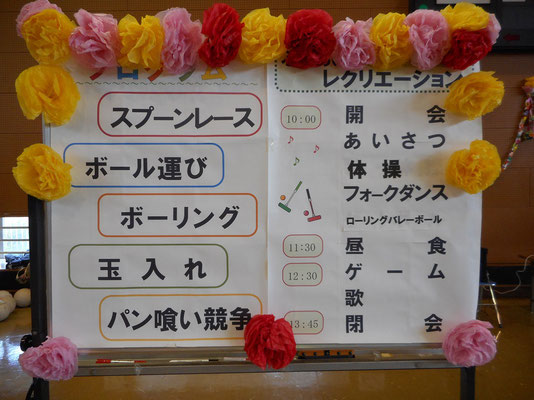 プログラム
スプーンレース
ボール運び
ボーリング
玉入れ
パン喰い競争
レクリエーション
10:00 開会
あいさつ
体操
フォークダンス
ローリングバレーボール
11:30 昼食
12:30 ゲーム
歌
13:45 閉会